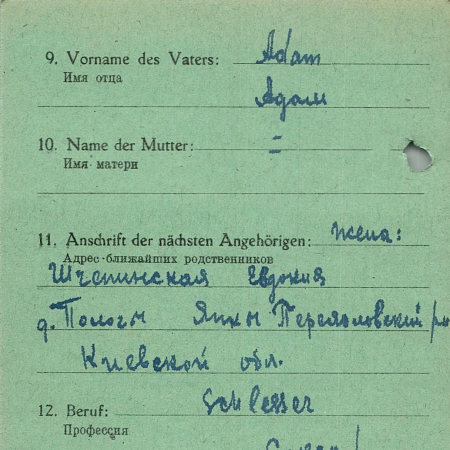 9. Vorname des Vaters: Adam
Имя отца
Адам
10. Name der Mutter: =
Имя матери
11. Anschrift der nächsten Angehörigen: жена:
Адрес ближайших родственников
Шчепинская Евдокия
д. Пологи Янки Переяловский р-н
Киевской обл.
12. Beruf: Schlesser
Профессия